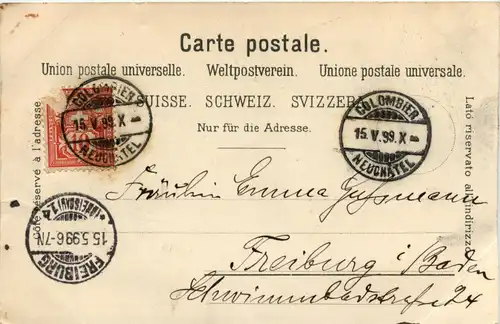 Carte postale.
Union postale universelle. Weltpostverein. Unione postale universale.
SUISSE. SCHWEIZ. SVIZZERA
Nur für die Adresse.
Côté réservé à l'adresse.
Lato riservato all'indirizzo.
COLOMBIER
15. V. 99. X
NEUCHÂTEL
COLOMBIER
15. V. 99. X
NEUCHÂTEL
FREIBURG
15.5.99.6-7N
Fräulein Emma
Freiburg i/Baden
Schwimmbadstrasse 24